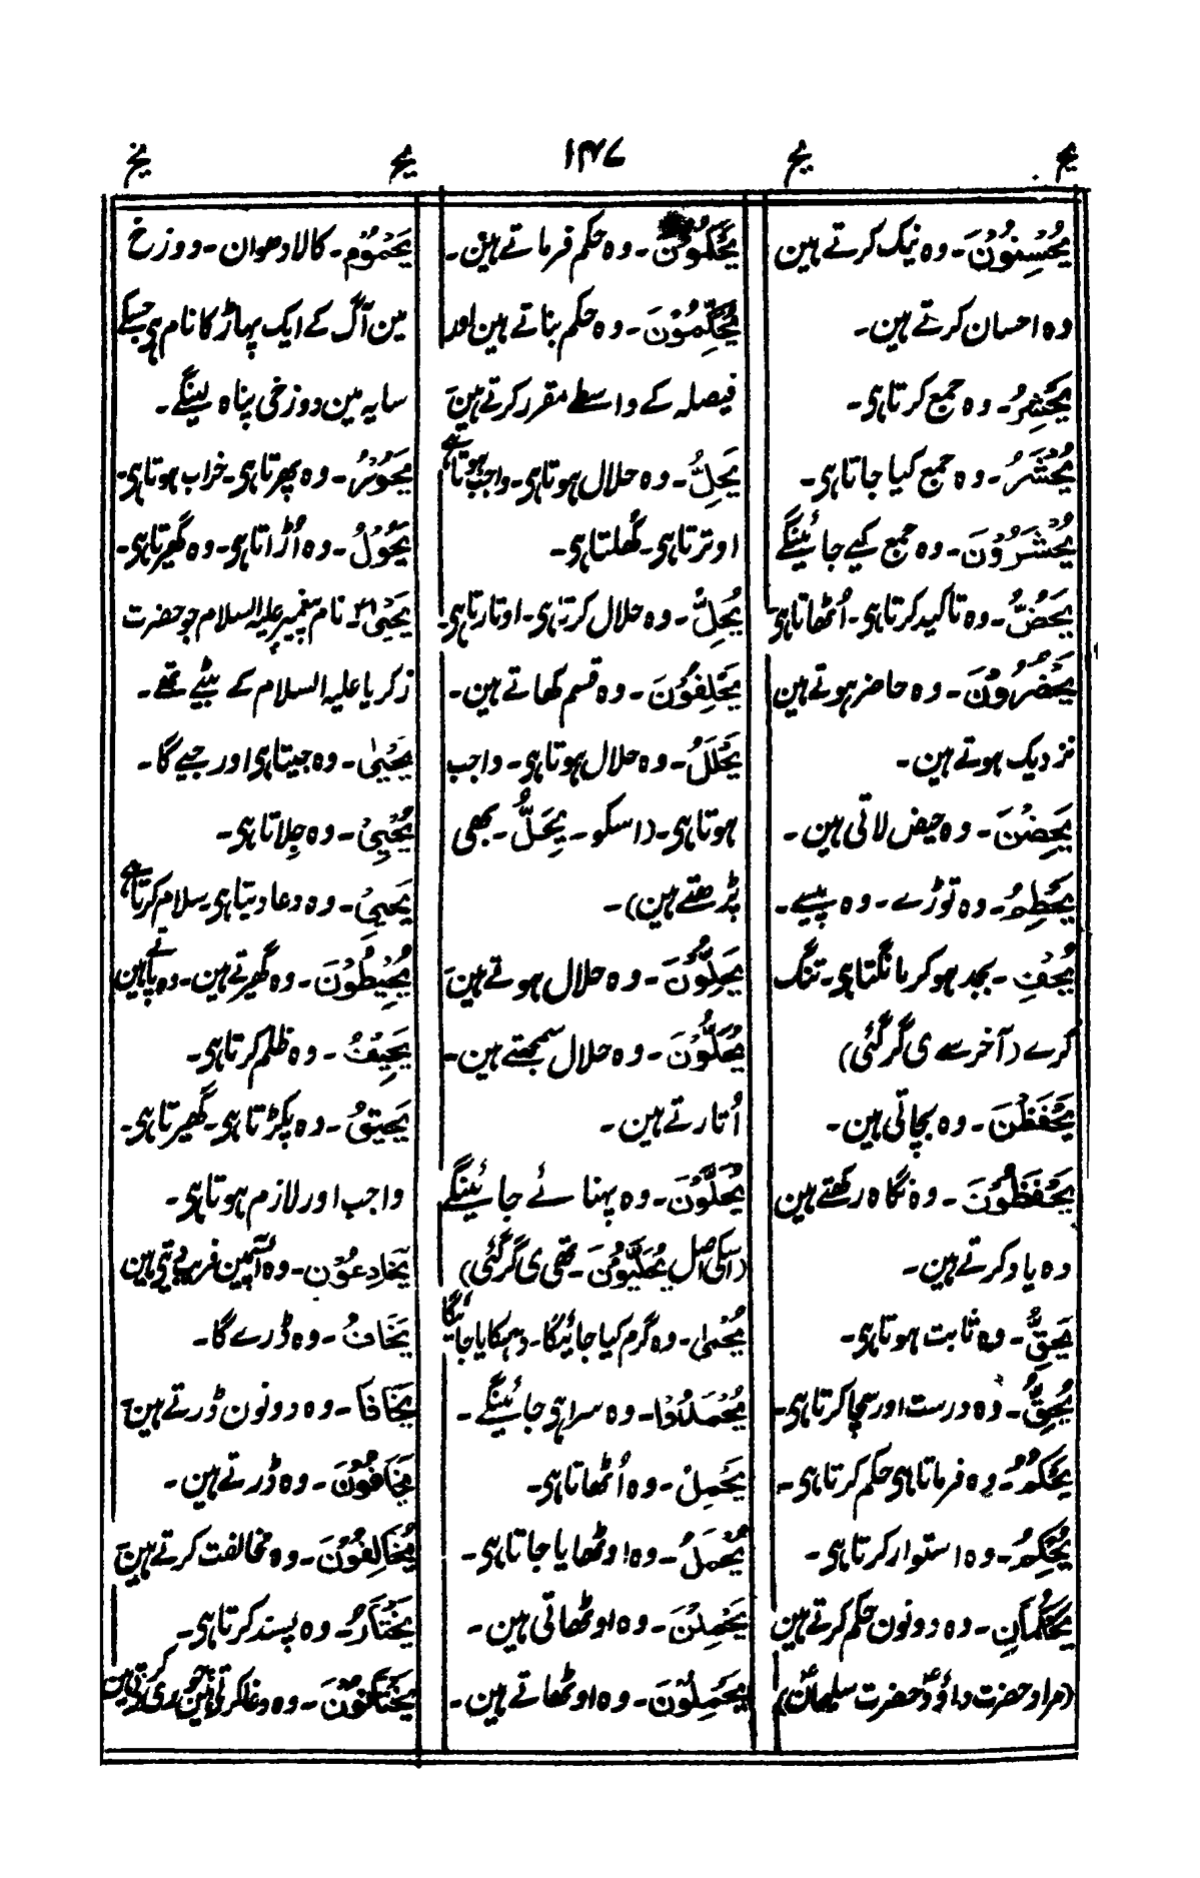 یح یح ۱۴۷ یح یخ
یُحْسِنُوْنَ۔ وہ نیک کرتے ہین
وہ احسان کرتے ہین۔
یَحْشِرُ۔ وہ جمع کرتا ہی۔
یُحْشَرُ۔ وہ جمع کیا جاتا ہی۔
یُحْشَرُوْنَ۔ وہ جمع کیے جائینگے
یَحُضُّ۔ وہ تاکید کرتا ہی۔ اُٹھاتا ہی
یَحْضُرُوْنَ۔ وہ حاضر ہوتے ہین
نزدیک ہوتے ہین۔
یَحِضْنَ۔ وہ حیض لاتی ہین۔
یَحْطِمُ۔ وہ توڑے۔ وہ پیسے۔
یُحْفِ۔ بجد ہو کر مانگتا ہی۔ تنگ
کرے (آخر سے ی گر گئی)
یَحْفَظْنَ۔ وہ بچاتی ہین۔
یَحْفَظُوْنَ۔ وہ نگاہ رکھتے ہین
وہ یاد کرتے ہین۔
یَحِقُّ۔ وہ ثابت ہوتا ہی۔
یُحِقُّ۔ وہ درست اور سچا کرتا ہی۔
یَحْکُمُ۔ وہ فرماتا ہی حکم کرتا ہی۔
یُحْکِمُ۔ وہ استوار کرتا ہی۔
یَحْکُمَانِ۔ وہ دونون حکم کرتے ہین
(مراد حضرت داؤدؑ حضرت سلیمانؑ)
یَحْکُمُوْنَ۔ وہ حکم فرماتے ہین۔
یُحَکِّمُوْنَ۔ وہ حکم بناتے ہین اور
فیصلہ کے واسطے مقرر کرتے ہین
یَحِلُّ۔ وہ حلال ہوتا ہی۔ واجب ہوتا ہے
اوترتا ہی۔ گُھلتا ہی۔
یُحِلُّ۔ وہ حلال کرتا ہی۔ اوتارتا ہی۔
یَحْلِفُوْنَ۔ وہ قسم کھاتے ہین۔
یَحْلَلُ۔ وہ حلال ہوتا ہی۔ واجب
ہوتا ہی۔ (اسکو۔ یَحِلُّ۔ بھی
پڑھتے ہین)۔
یَحِلُّوْنَ۔ وہ حلال ہوتے ہین
یُحِلُّوْنَ۔ وہ حلال سمجھتے ہین۔
اُتارتے ہین۔
یُحَلَّوْنَ۔ وہ پہنائے جائینگے
(اسکی اصل یُحَلَّیُوْنَ۔ تھی ی گر گئی)
یُحْمٰی۔ وہ گرم کیا جائیگا۔ دہکایا جائیگا
یُحْمَدُوْا۔ وہ سراہی جائینگے۔
یَحْمِلُ۔ وہ اُٹھاتا ہی۔
یُحْمَلُ۔ وہ اوٹھایا جاتا ہی۔
یَحْمِلْنَ۔ وہ اوٹھاتی ہین۔
یَحْمِلُوْنَ۔ وہ اوٹھاتے ہین۔
یَحْمُوْمٍ۔ کالا دھوان۔ دوزخ
مین آگ کے ایک پہاڑ کا نام ہی جسکے
سایہ مین دوزخی پناہ لینگے۔
یَحُوْرُ۔ وہ پھرتا ہی۔ خراب ہوتا ہی۔
یَحُوْلُ۔ وہ اُڑاتا ہی۔ وہ گھیرتا ہی۔
یَحْیٰی۔ نام پیغمبر علیہ السلام جو حضرت
زکریا علیہ السلام کے بیٹے تھے۔
یَحْیٰی۔ وہ جیتا ہی اور جیے گا۔
یُحْیِیْ۔ وہ جِلاتا ہی۔
یُحَیِّیْ۔ وہ دعا دیتا ہی سلام کرتا ہے
یُحِیْطُوْنَ۔ وہ گھیرتے ہین۔ وہ پاتے ہین
یَحِیْفُ۔ وہ ظلم کرتا ہی۔
یَحِیْقُ۔ وہ پکڑتا ہی۔ گھیرتا ہی۔
واجب اور لازم ہوتا ہی۔
یُخَادِعُوْنَ۔ وہ آپسمین فریب دیتے ہین
یَخَافُ۔ وہ ڈرے گا۔
یَخَافَا۔ وہ دونون ڈرتے ہین
یَخَافُوْنَ۔ وہ ڈرتے ہین۔
یُخَالِفُوْنَ۔ وہ مخالفت کرتے ہین
یَخْتَارُ۔ وہ پسند کرتا ہی۔
یَخْتَانُوْنَ۔ وہ دغا کرتے ہین چوری کرتے ہین